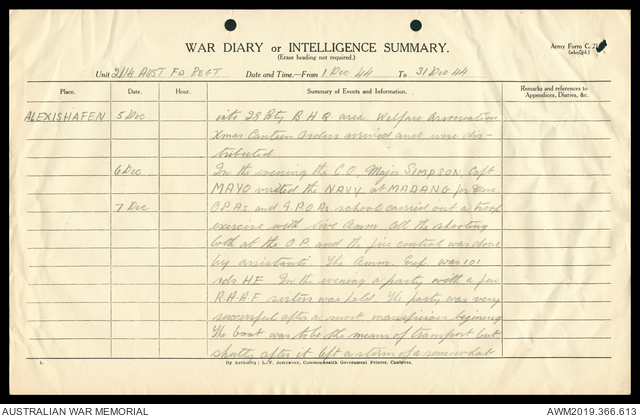 WAR DIARY or INTELLIGENCE SUMMARY.
(Erase heading not required.)
Army Form C.
Unit 2/14 AUST FD REGT Date and Time.—From 1 Dec 44 To 31 Dec 44
Place. Date. Hour. Summary of Events and Information. Remarks and references to Appendices, Diaries, &c.
ALEXISHAFEN 5 Dec into 28 Bty B.H.Q area. Welfare Association
Xmas Canteen Orders arrived and were dis-
tributed.
6 Dec In the evening the C.O., Major SIMPSON, Capt
MAYO visited the NAVY at MADANG for
7 Dec O.P.As and G.P.O.As school carried out a troop
exercise with live Amm. All the shooting
both at the O.P. and the fire control was done
by assistants. The Amm. Exp. was 101
rds H.E. In the evening a party with a few
sisters was held. The party was very
successful after a most inauspicious begining
The boat was to be the means of transport but
shortly after it left a storm of a somewhat
L.
By Authority: L. F. JOHNSTON, Commonwealth Government Printer, Canberra.
AUSTRALIAN WAR MEMORIAL
AWM2019.366.613